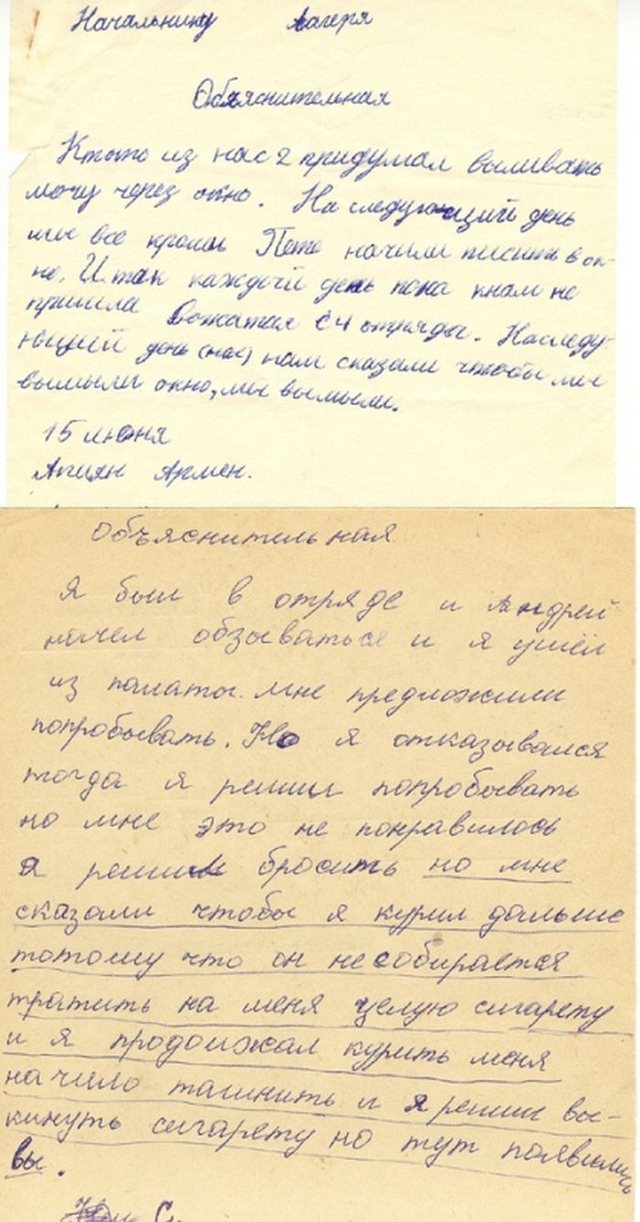 Начальнику лагеря
Объяснительная
Ктото из нас 2 придумал выливать
мочу через окно. На следующий день
мы все кроме Пети начили писить в ок-
не. И так каждый день пока кнам не
пришла вожатая с 4 отряды. Наследу-
ющий день (нас) нам сказали чтобы мы
вымыли окно, мы вымыли.
15 июня
Апиян Армен.
Объяснительная
Я был в отряде и Андрей
начел обзываться и я ушёл
из палаты. мне предложили
попробывать. Но я отказывался
тогда я решил попробывать
но мне это не понравилось
я решил бросить но мне
сказали чтобы я курил дальше
потому что он не собирается
тратить на меня целую сигарету
и я продолжал курить меня
начило ташнить и я решил вы-
кинуть сигарету но тут появились
вы.